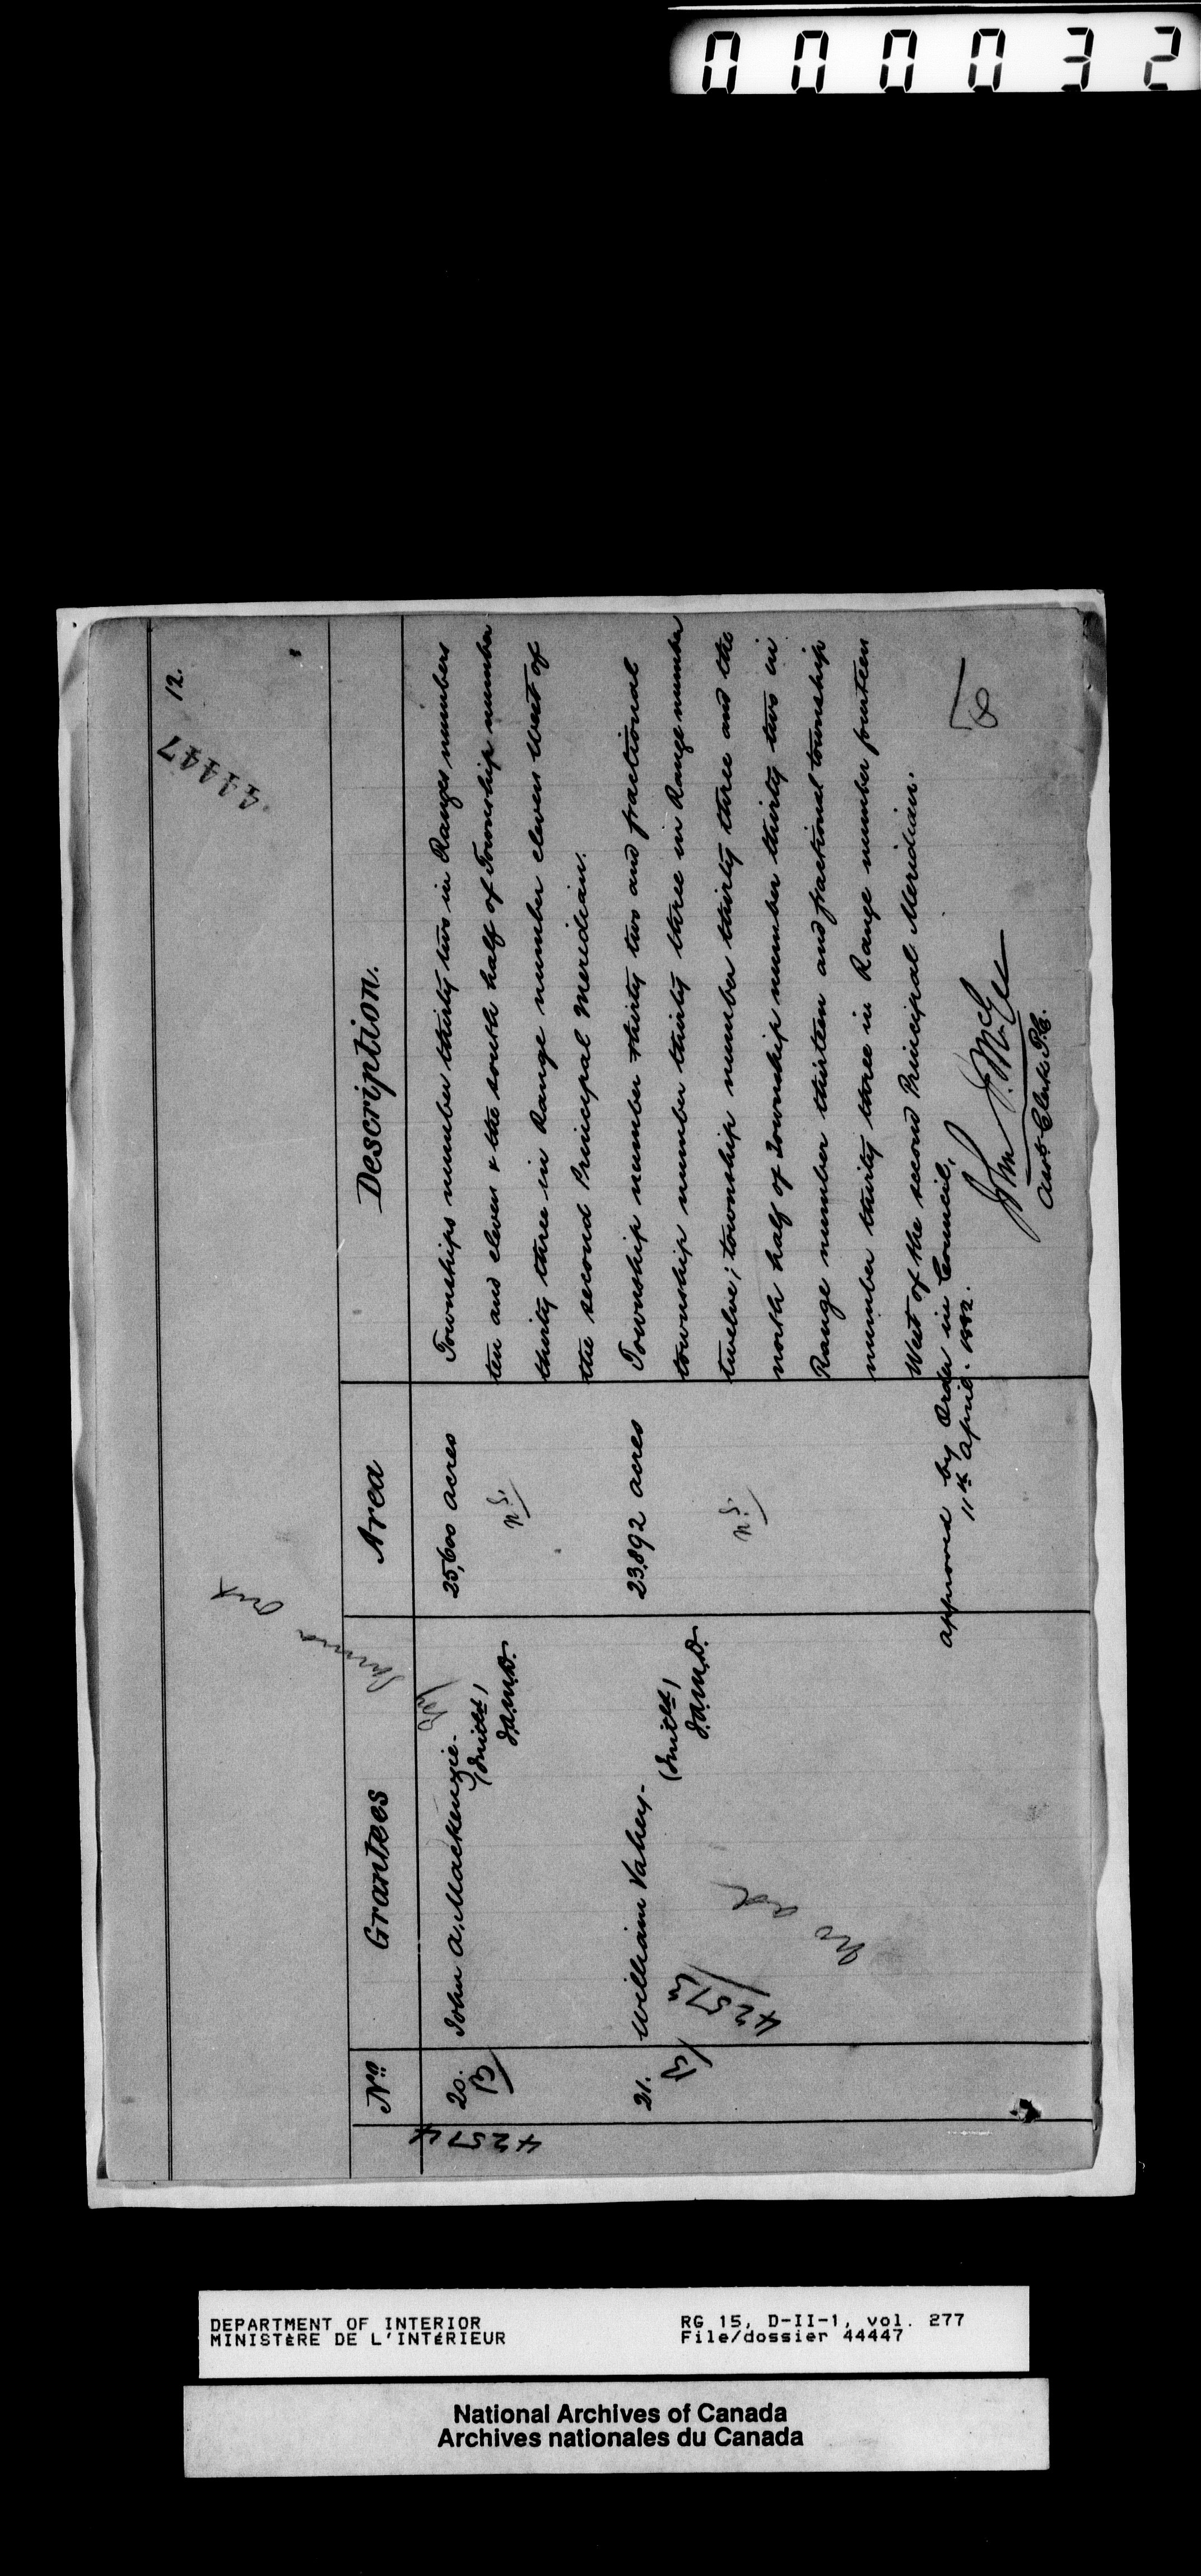 000032
12.
44447
Nos
Grantees
Area
Description.
42574
20.
John A. Mackenzie.
(Initld)
J.A.M.D.
25,600 acres
Townships number thirty two in Ranges numbers
ten and eleven & the south half of Township number
thirty three in Range number eleven West of
the second Principal Meridian.
21.
William Vahey.
(Initld)
J.A.M.D.
4257
no
23,892 acres
Township number thirty two and fractional
township number thirty three in Range number
twelve; township number thirty three and the
north half of Township number thirty two in
Range number thirteen and fractional township
number thirty three in Range number fourteen
West of the second Principal Meridian.
approved by Order in Council,
11th April. 1882.
John J. McGee
Asst Clerk P.C.
DEPARTMENT OF INTERIOR
MINISTÈRE DE L'INTÉRIEUR
RG 15, D-II-1, vol. 277
File/dossier 44447
National Archives of Canada
Archives nationales du Canada